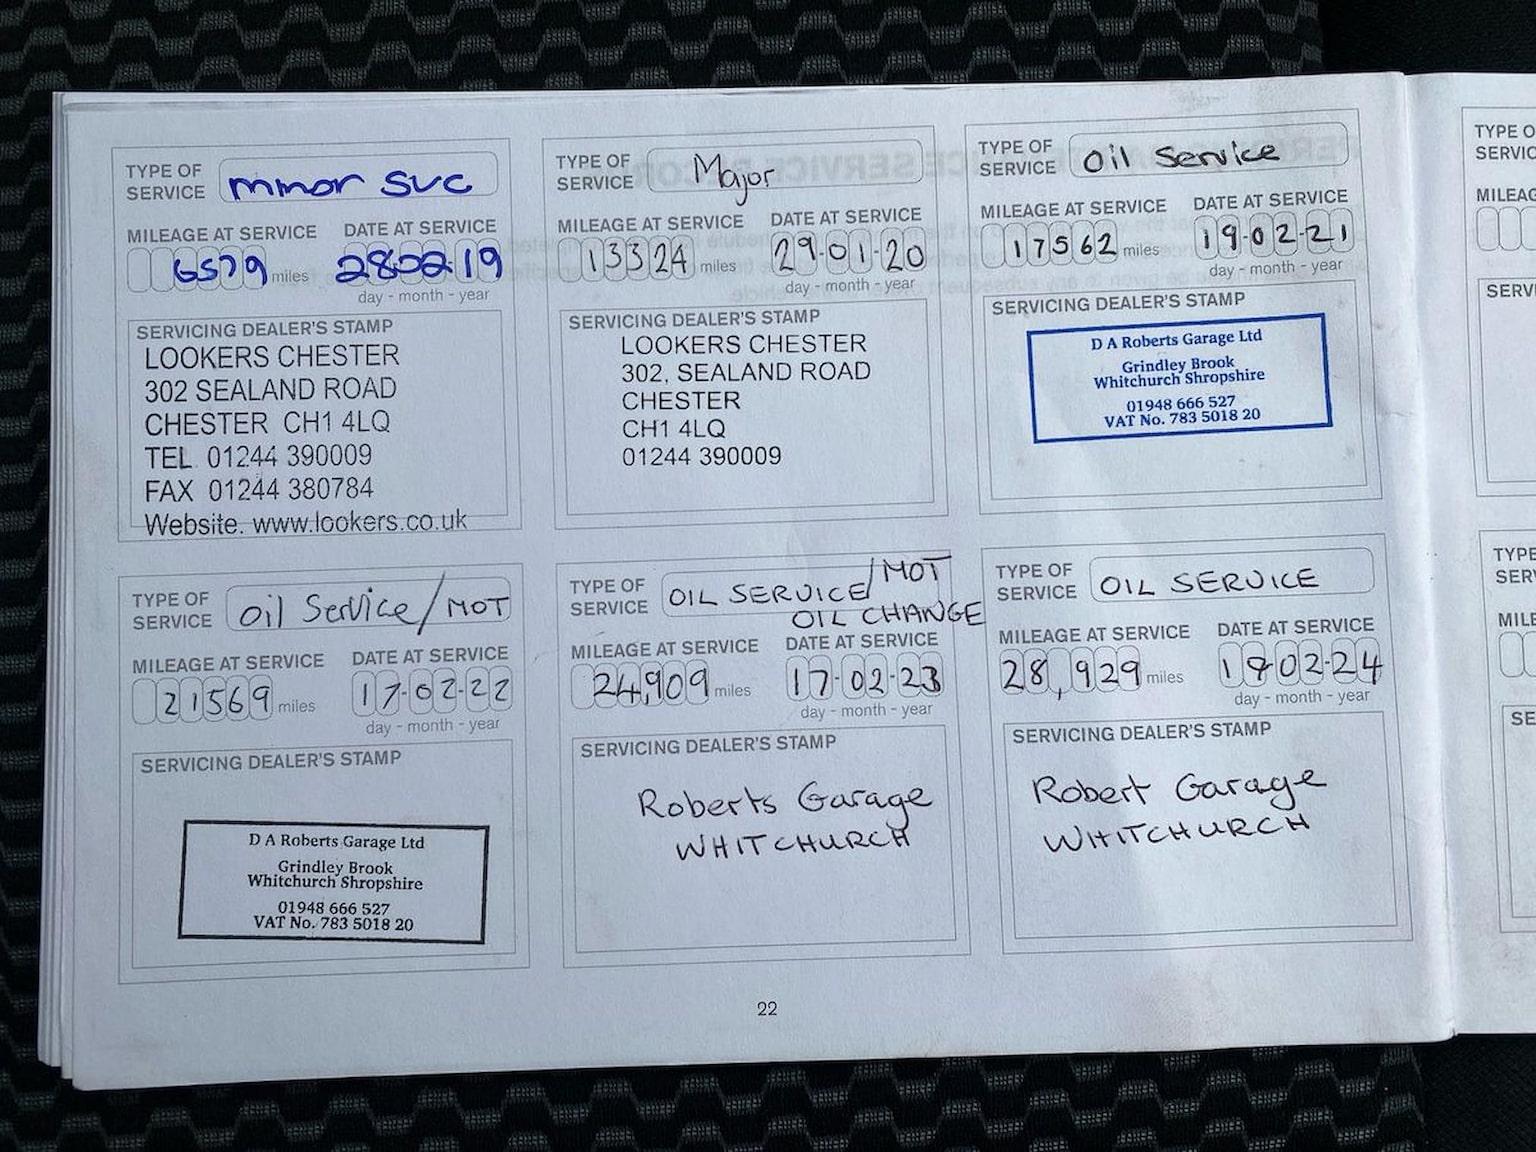 TYPE OF SERVICE minor svc
MILEAGE AT SERVICE DATE AT SERVICE
6579 miles 28-02-19
day - month - year
SERVICING DEALER'S STAMP
LOOKERS CHESTER
302 SEALAND ROAD
CHESTER CH1 4LQ
TEL. 01244 390009
FAX 01244 380784
Website. www.lookers.co.uk
TYPE OF SERVICE Major
MILEAGE AT SERVICE DATE AT SERVICE
13324 miles 29-01-20
day - month - year
SERVICING DEALER'S STAMP
LOOKERS CHESTER
302, SEALAND ROAD
CHESTER
CH1 4LQ
01244 390009
TYPE OF SERVICE Oil Service
MILEAGE AT SERVICE DATE AT SERVICE
17562 miles 19-02-21
day - month - year
SERVICING DEALER'S STAMP
D A Roberts Garage Ltd
Grindley Brook
Whitchurch Shropshire
01948 666 527
VAT No. 783 5018 20
TYPE OF SERVICE Oil Service/MOT
MILEAGE AT SERVICE DATE AT SERVICE
21569 miles 17-02-22
day - month - year
SERVICING DEALER'S STAMP
D A Roberts Garage Ltd
Grindley Brook
Whitchurch Shropshire
01948 666 527
VAT No. 783 5018 20
TYPE OF SERVICE OIL SERVICE/MOT
OIL CHANGE
MILEAGE AT SERVICE DATE AT SERVICE
24,909 miles 17-02-23
day - month - year
SERVICING DEALER'S STAMP
Roberts Garage
WHITCHURCH
TYPE OF SERVICE OIL SERVICE
MILEAGE AT SERVICE DATE AT SERVICE
28,929 miles
day - month - year
SERVICING DEALER'S STAMP
Robert Garage
WHITCHURCH
22
TYPE O
SERVIC
MILEAG
SERVI
TYPE
SER
MILE
SE